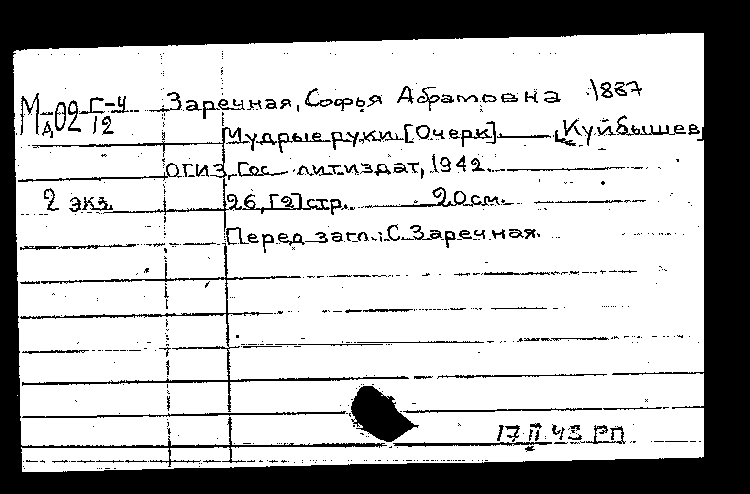 М Д 02 Г-4/12
Заречная, Софья Абрамовна 1887
Мудрые руки. [Очерк]. — [Куйбышев]
ОГИЗ, Гос. литиздат, 1942.
2 экз.
26, [2] стр. 20 см.
Перед загл.: С. Заречная.
17 II 43 РП